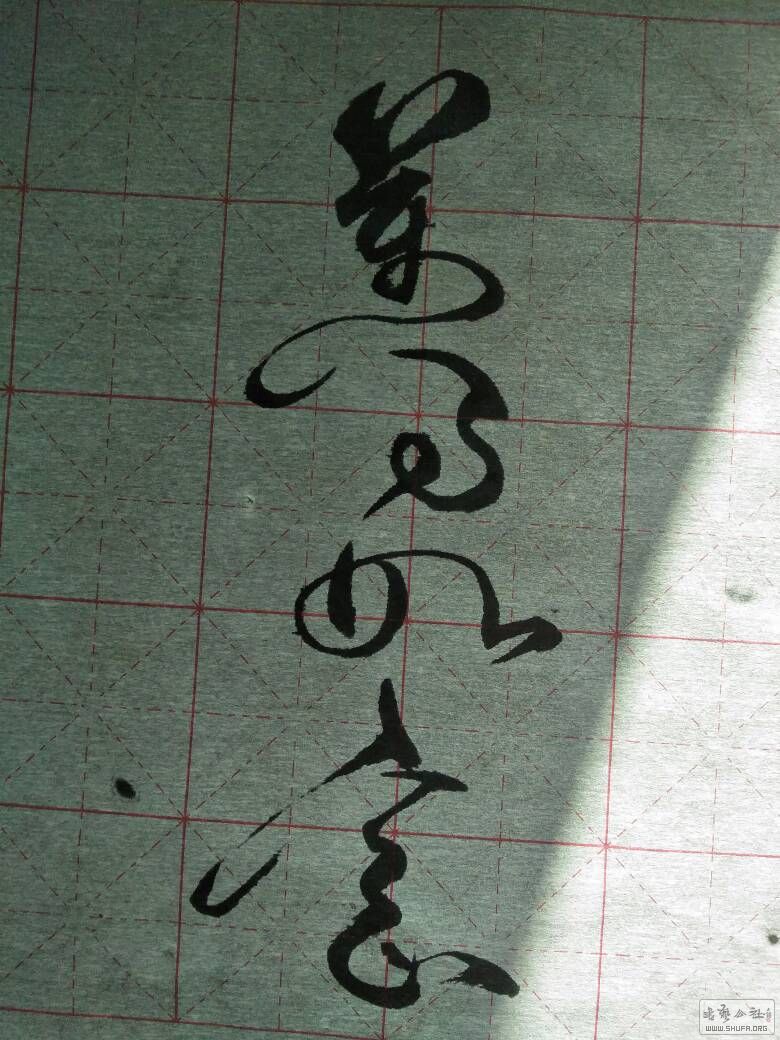 萬事如意
书艺公社
WWW.SHUFA.ORG